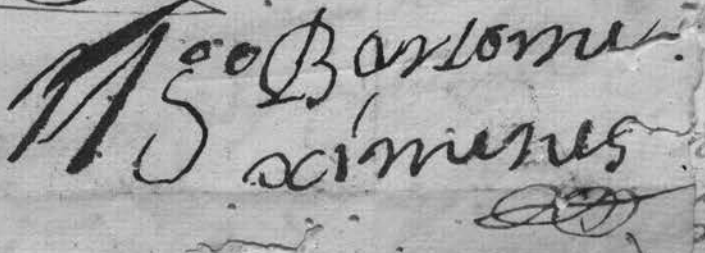 Migo Bartome
ximenes